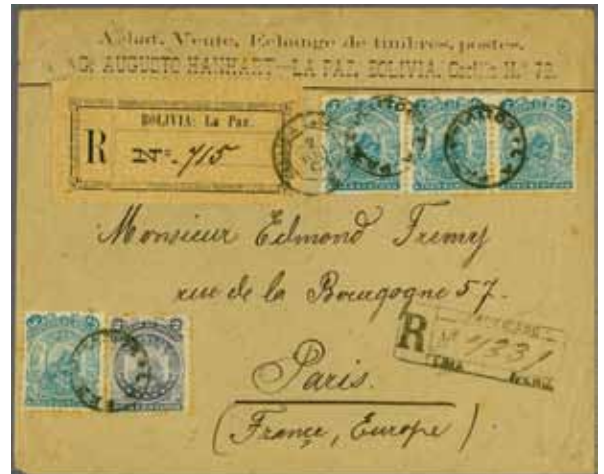 Achat, Vente, Echange de timbres-postes.
AUGUSTO HANHART—LA PAZ, BOLIVIA. N.º 72.
BOLIVIA: La Paz.
R Nº. 715
Monsieur Edmond Fremy
rue de la Bourgogne 57.
R Nº 1331
Paris.
(France, Europe)